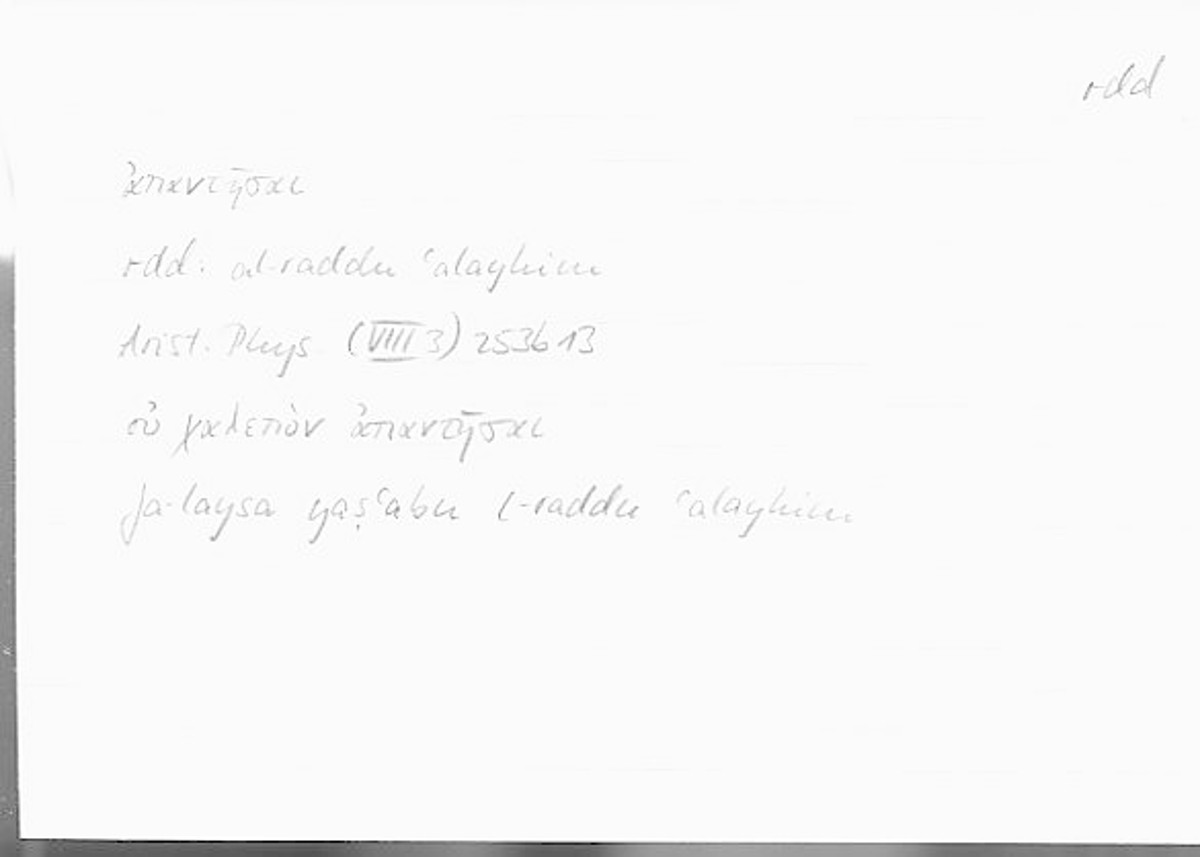 rdd
ἀπαντῆσαι
rdd. al-raddu ʿalayhim
Arist. Phys. (VIII 3) 253b13
οὐ χαλεπὸν ἀπαντῆσαι
fa-laysa yaṣʿabu l-raddu ʿalayhim